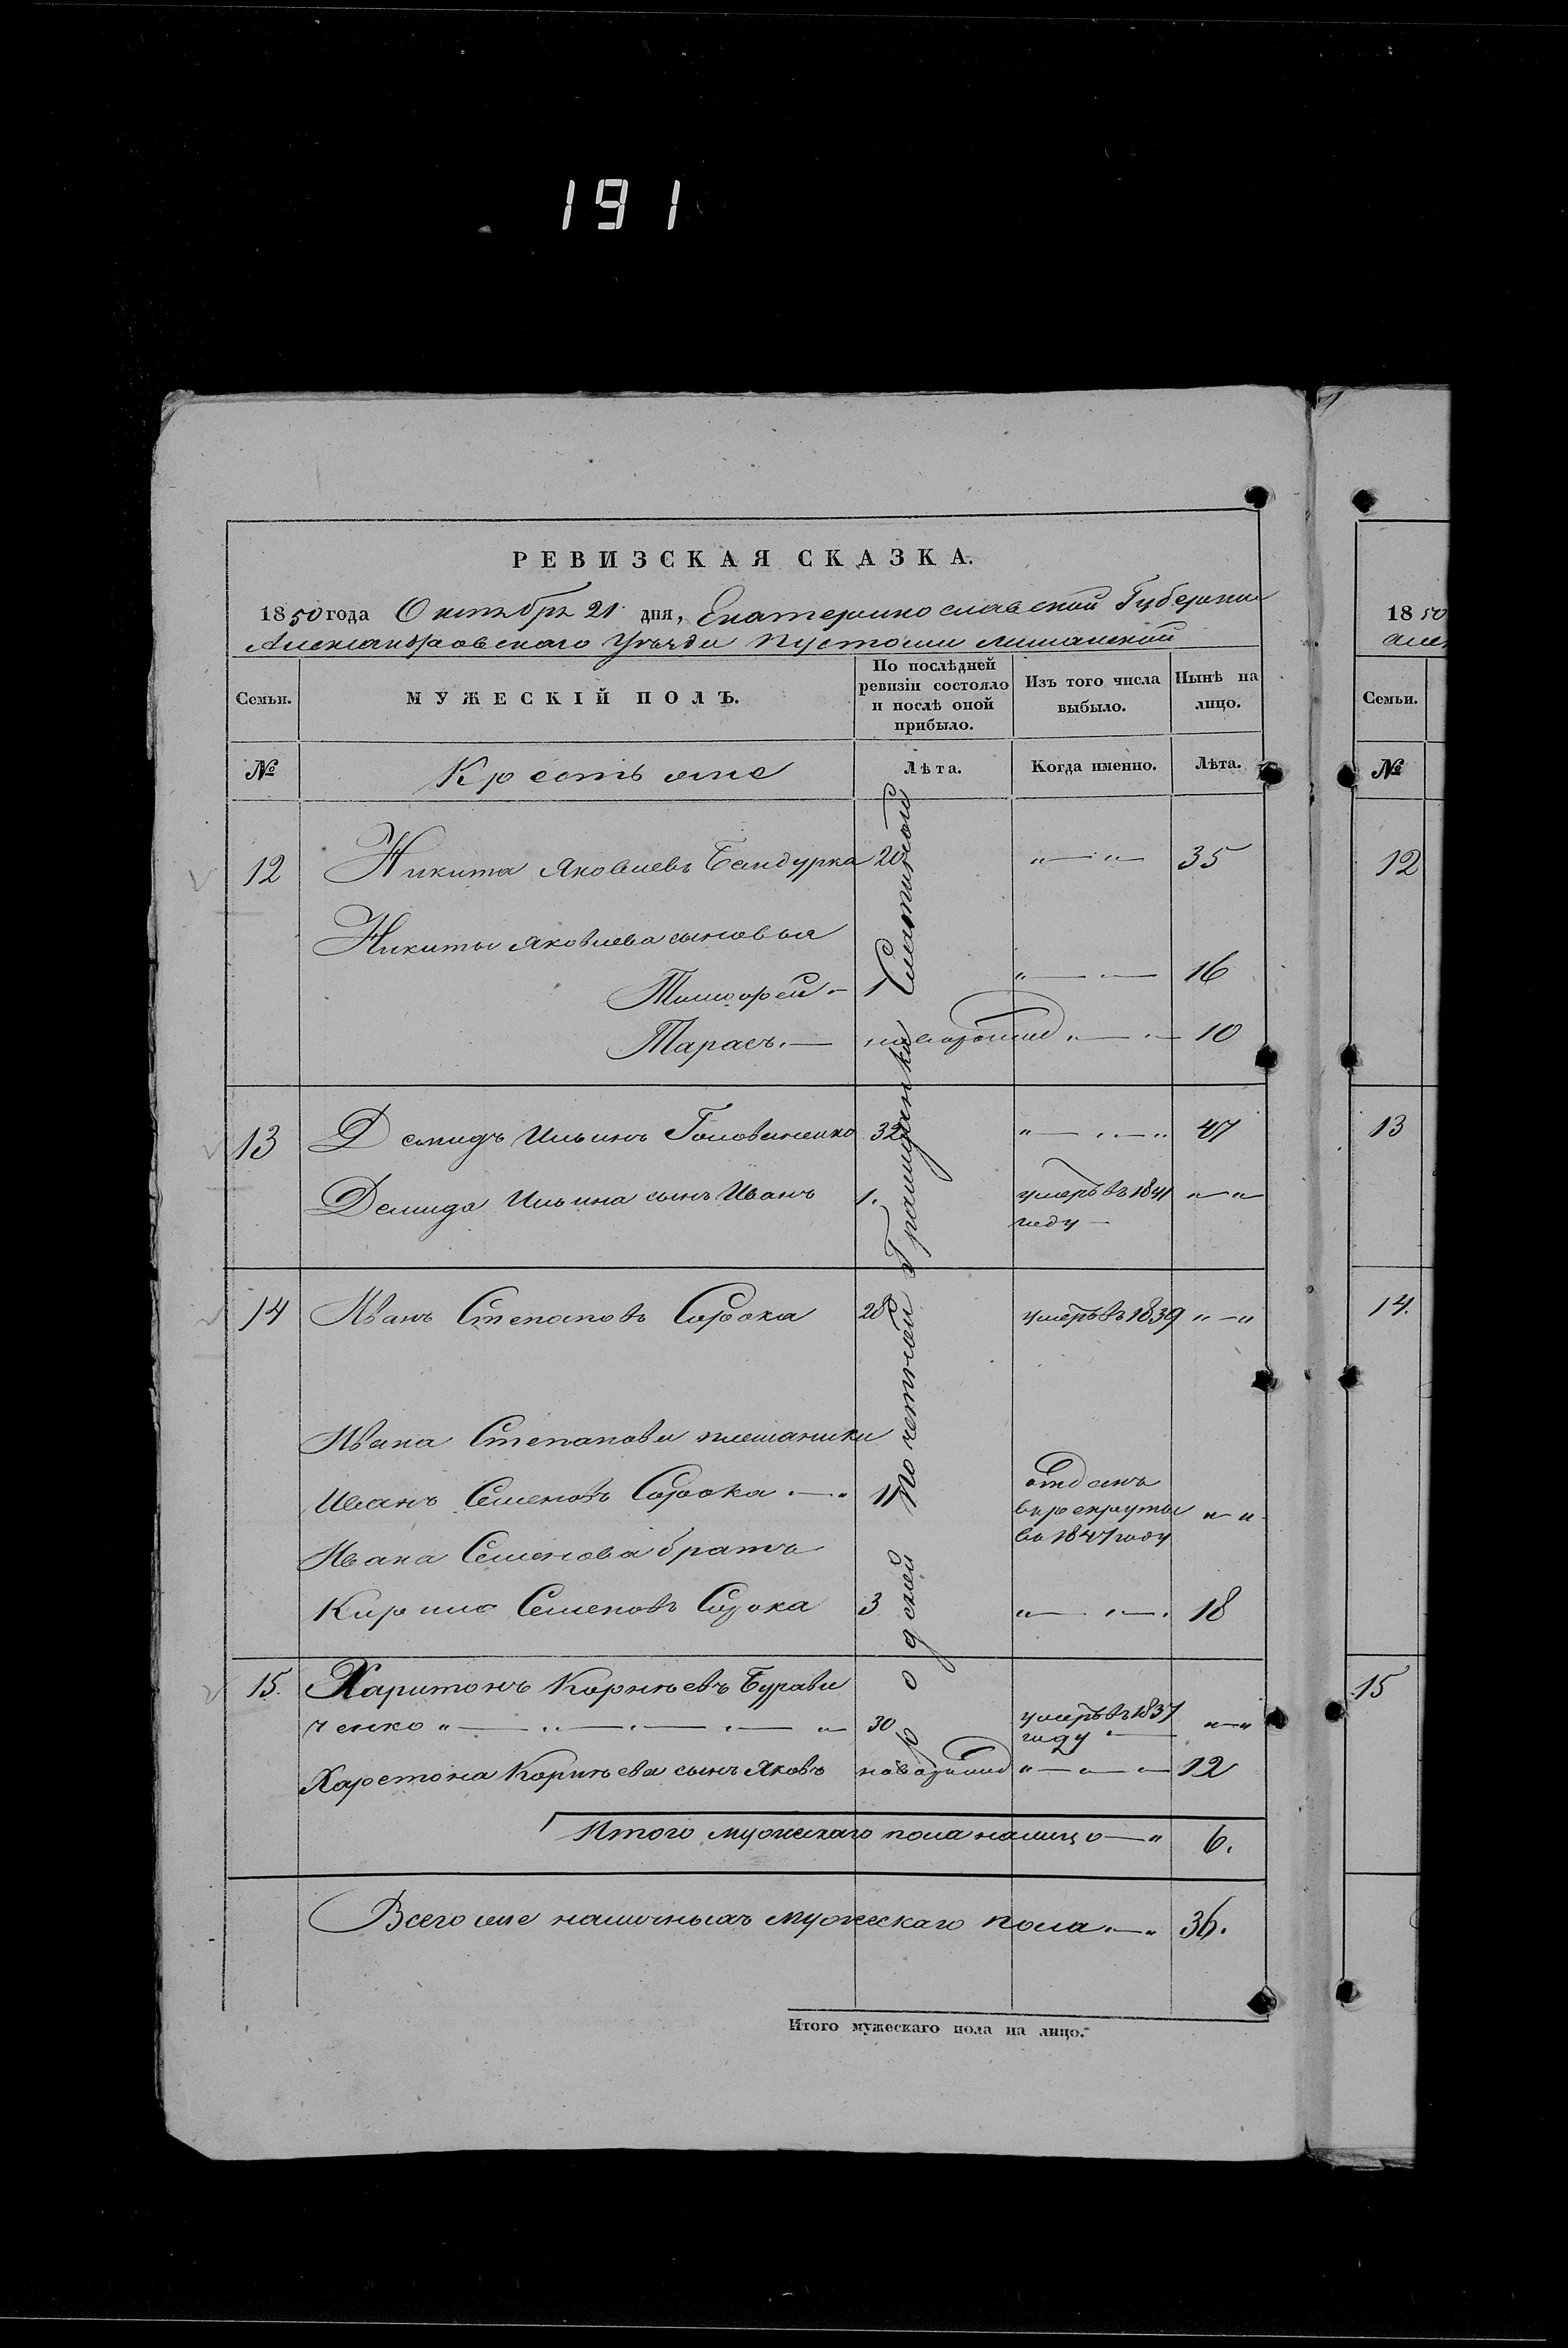 191
РЕВИЗСКАЯ СКАЗКА.
1850 года Октября 21 дня, Екатеринославской Губернии
Александровскаго Уѣзда Пустоши
Семьи.
МУЖЕСКІЙ ПОЛЪ.
По послѣдней ревизіи состояло и послѣ оной прибыло.
Изъ того числа выбыло.
Нынѣ на лицо.
№
Крестьяне
Лѣта.
Когда именно.
Лѣта.
12 Никита Яковлевъ Бандурка 20 "—" 35
Никиты Яковлева сыновья
Тимофей — 1 "—" 16
Тарасъ. — новорожд "—" 10
13 Демидъ Ильинъ Головченко 32 "—" 47
Демида Ильина сынъ Иванъ 1. умеръ въ 1841 году — "—"
14 Иванъ Степановъ Сорока 28 умеръ въ 1839 "—"
Ивана Степанова племяники
Иванъ Семеновъ Сорока —" 11 отданъ в рекруты в 1847 году "—"
Ивана Семенова братъ
Кирило Семеновъ Сорока 3 "—" 18
15. Харитонъ Корнѣевъ Бурави
ченко "—" 30 умеръ въ 1837 году — "—"
Харетона Корнѣева сынъ Яковъ новорожд "—" 12
Итого мужескаго пола налицо —" 6.
Всего же наличныхъ мужескаго пола —" 36.
Итого мужескаго пола на лицо.
1850
Семьи.
№
12
13
14.
15